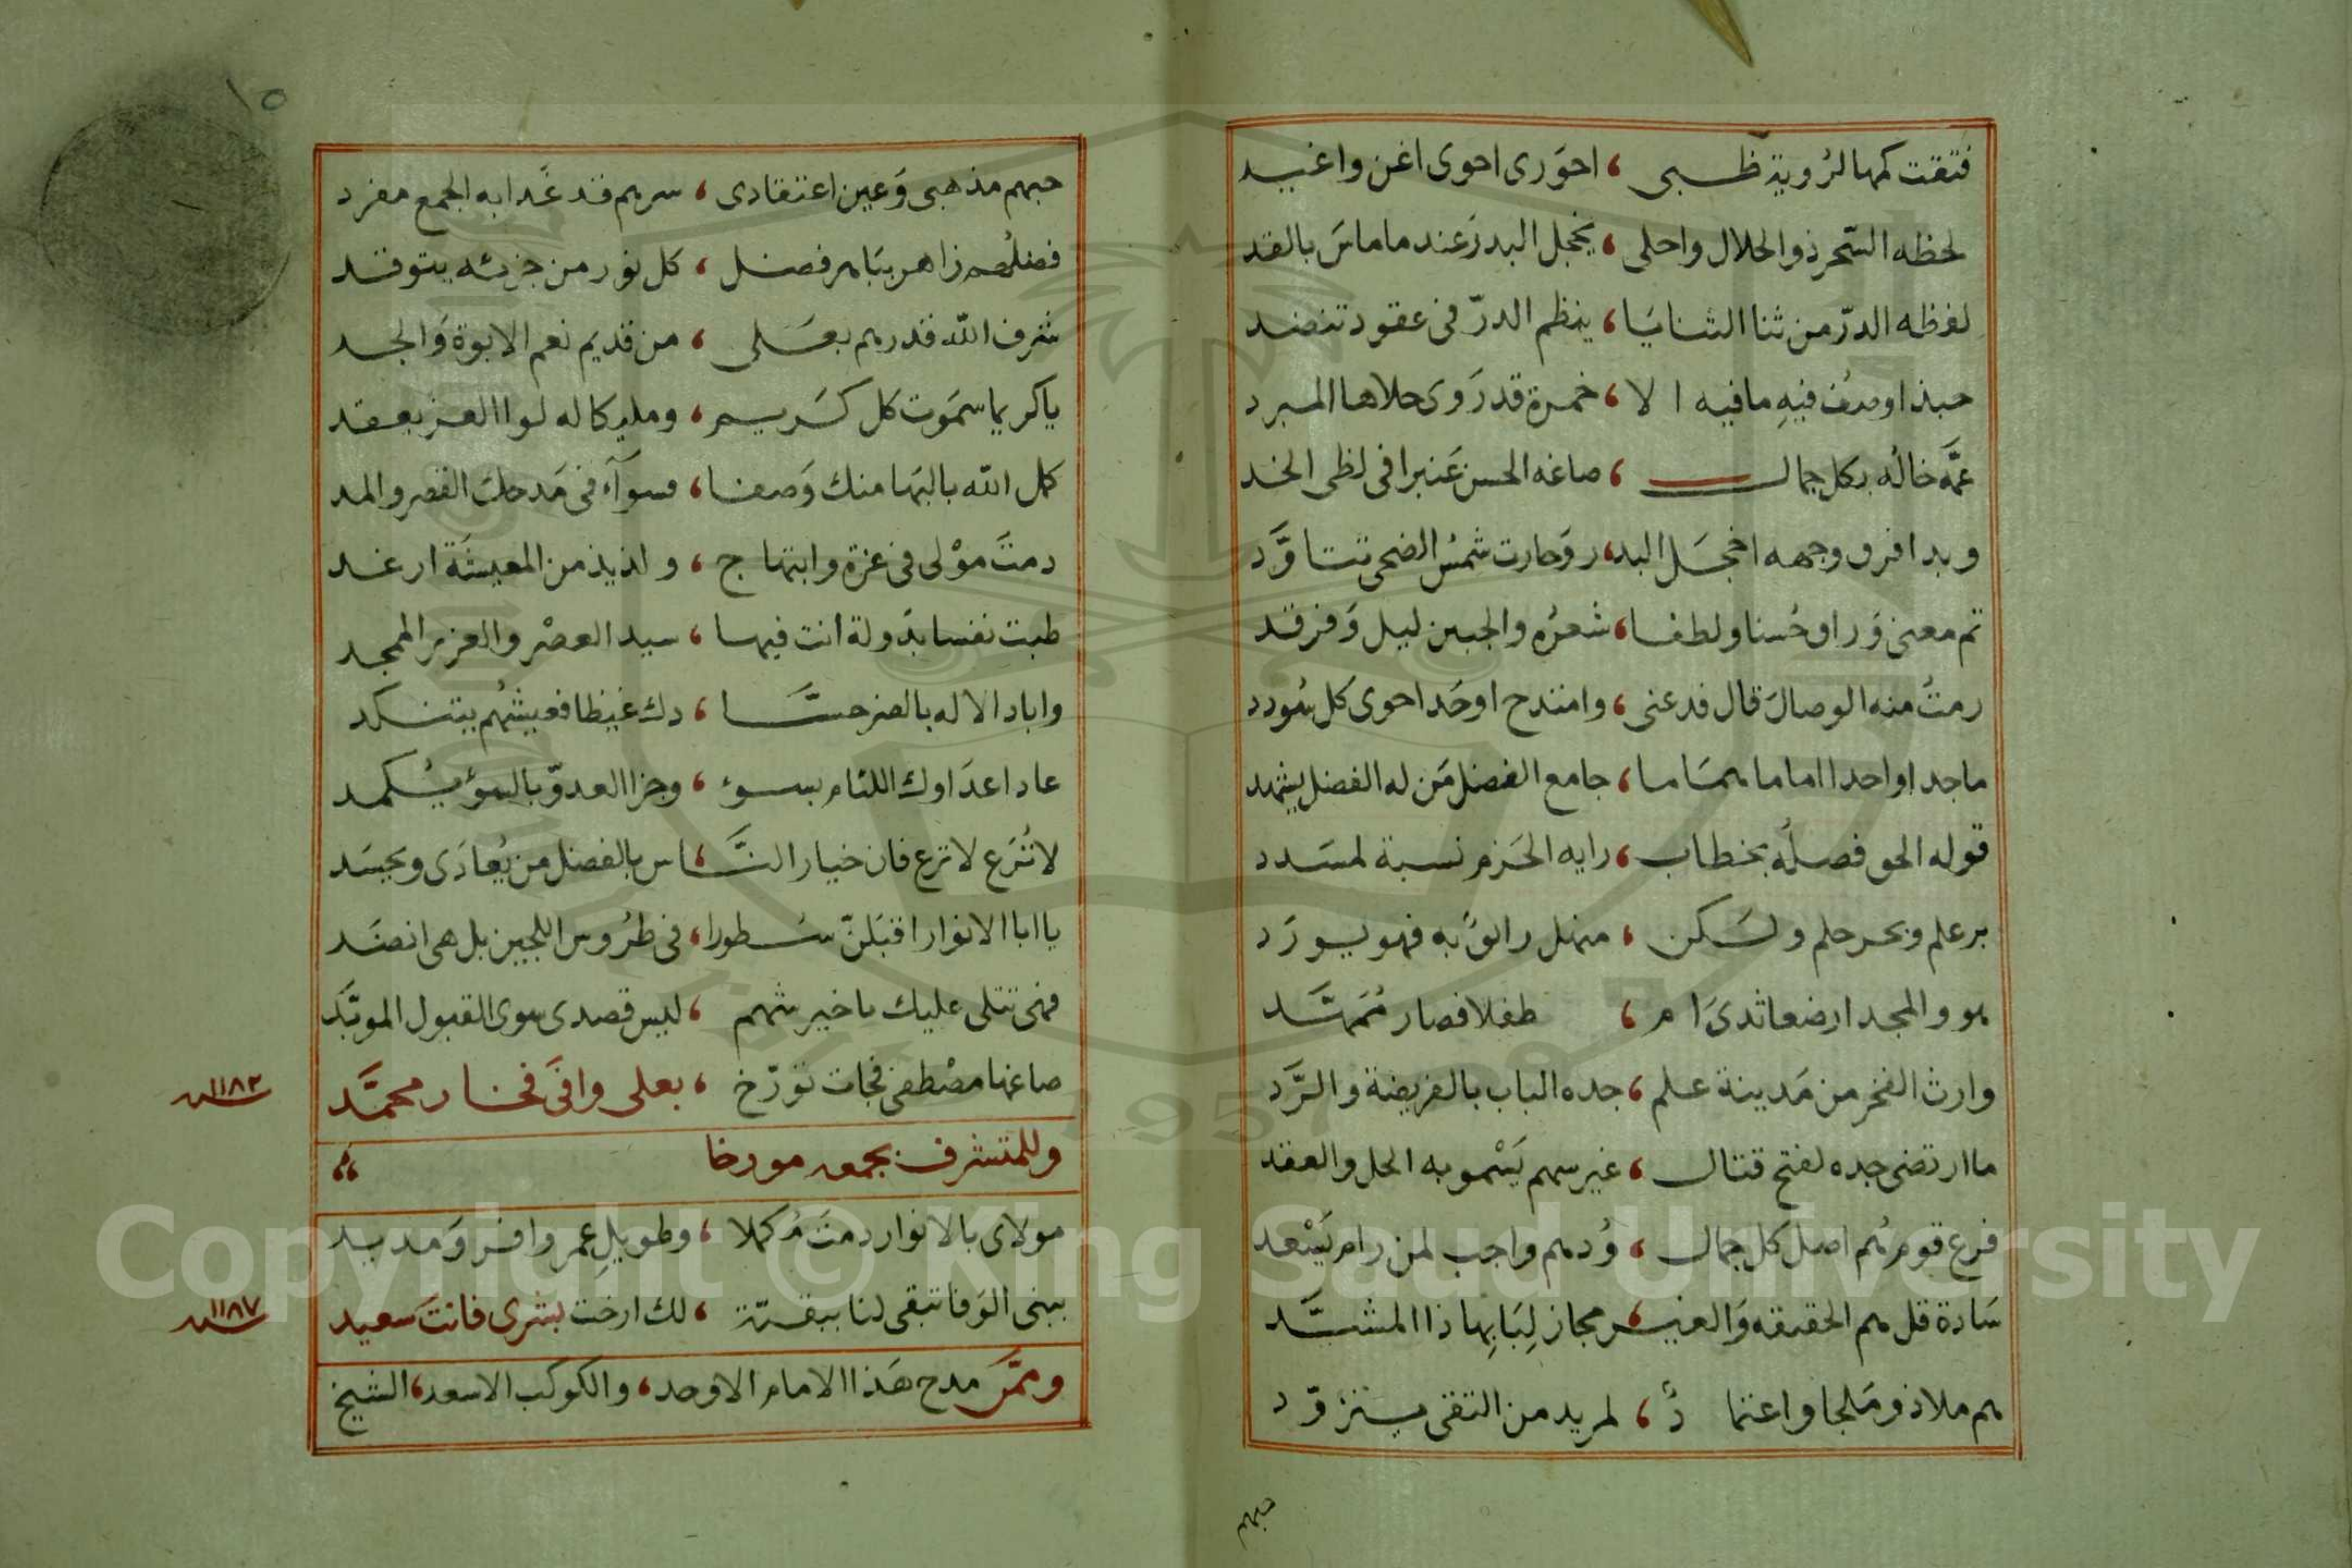 فتقت كمها لرُوية ظبى ، احوَرى احوى اغن واغيد
لحظه السّحر ذو الحلال واحلى ، يخجل البدرَ عند ما ماسَ بالقد
لفظه الدرّ من ثنا الثنايَا ، ينظم الدرّ فى عقود تنضد
حبذا وصف فيهِ ما فيه الا ، خمرة قد رَوى حلاها المبرد
عمَّه خالُه بكل جمال ، صاغه الحسن عَنبرا فى لظى الخد
وبدا فرق وجهه اخجَل البد ، ر وَحارت شمسُ الضحى تتاوَّد
تم معنى وَراق حُسنا ولطفا ، شعرُه والجبين ليل وَفرقد
رمتُ منه الوصالَ قال فدعنى ، وامتدح اوحَد احوى كل سُودد
ماجدا واحدا اماما همَاما ، جامع الفضل مَن له الفضل يشهد
قوله الحق فصلُه بخطاب ، رايه الحَزم نسبة لمسَدد
بر علم وبحر حلم ولَكن ، منهل رائقٌ به فهو يورَد
هو والمجد ارضعا ثدىَ ام ، طفلا فصار مُمَهَّد
وارث الفخر من مَدينة علم ، جده الباب بالفريضة والرَّد
ما ارتضى جده لفتح قتال ، غير سهم يَسْمو به الحل والعقد
فرع قوم هُم اصل كل جمال ، وُدهم واجب لمن رام يَسْعد
سَادة قل هم الحقيقه وَالغيـ ، ـر مجاز لِبَابِها ذا المشيَّد
هم ملاذ ومَلجا واعتمادٌ ، لمريد من التقى يتزوّد
حبهم
١٥
حبهم مذهبى وَعين اعتقادى ، سرهم قد غَدا به الجمع مفرد
فضلُهم زاهر بتَام فضل ، كل نور من جزئه يتوقد
شرف الله قدرهم بعَلى ، من قديم نعم الابوة وَالجد
يا كريما سمَوت كل كَريم ، ومليكا له لوا العز يعقد
كمل الله بالبَها منك وَصفا ، فسوآء فى مَدحك القصر والمد
دمتَ موْلى فى عزة وابتهاج ، ولذيذ من المعيشَة ارغد
طبت نفسا بدَولة انت فيها ، سيد العصْر والعزيز الممجد
واباد الاله بالضر حسَّا ، دك غيظا فعيشُهم يتنكد
عاد اعدَاوك اللئام بسوء ، وجزا العدوّ بالسوء يُكمد
لا تُرَع لا ترع فان خيار النَّـ ، اس بالفضل من يُعادَى ويحسَد
يا ابا الانوار اقبَلنّ سُطورا ، فى طرُوس اللجين بل هى انضَد
فهى تتلى عليك يا خير شهم ، ليس قصدى سوى القبول الموبَّد
صاغها مصْطفى فجات تؤرّخ ، بعلى وافَى فخار محمَّد
سنة ١١٨٢
وللمتشرف بجمعه مورخا
مولاى بالانوار دمتَ مُكملا ، وطويلِ عمر وافر وَمديد
ببنى الوَفا تبقى لنا ببقيّة ، لك ارخت بشرى فانتَ سَعيد
سنة ١١٨٧
وممَّن مدح هَذا الامام الاوحد ، والكوكب الاسعد ، الشيخ
Copyright © King Saud University
1957